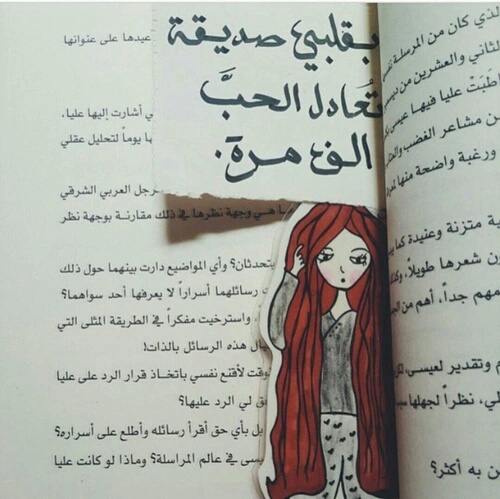 بقلبي صديقة
تُعادل الحبَّ
الف مرة.
عيدها على عنوانها
ي أشارت إليها عليا،
ها يوماً لتحليل عقلي
رجل العربي الشرقي
ما هي وجهة نظرها في ذلك مقارنة بوجهة نظر
يتحدثان؟ وأي المواضيع دارت بينهما حول ذلك
ت رسائلهما أسراراً لا يعرفها أحد سواهما؟
، واسترخيت مفكراً في الطريقة المثلى التي
ال هذه الرسائل بالذات!
وقت لأقنع نفسي باتخاذ قرار الرد على عليا
ق لي الرد عليها؟
بل بأي حق أقرأ رسائله وأطلع على أسراره؟
سى في عالم المراسلة؟ وماذا لو كانت عليا
لذي كان من المرسلة نفس
لثاني والعشرين من ديس
طَبَتْ عليا فيها عيسى لك
ن مشاعر الغضب والحب
ورغبة واضحة منها لمعر
ية متزنة وعنيدة كما يب
ون شعرها طويلاً، وكذ
مهم جداً، أهم من الحب
م وتقدير لعيسى، لكن
لي، نظراً لجهلها سبب
ن به أكثر؟